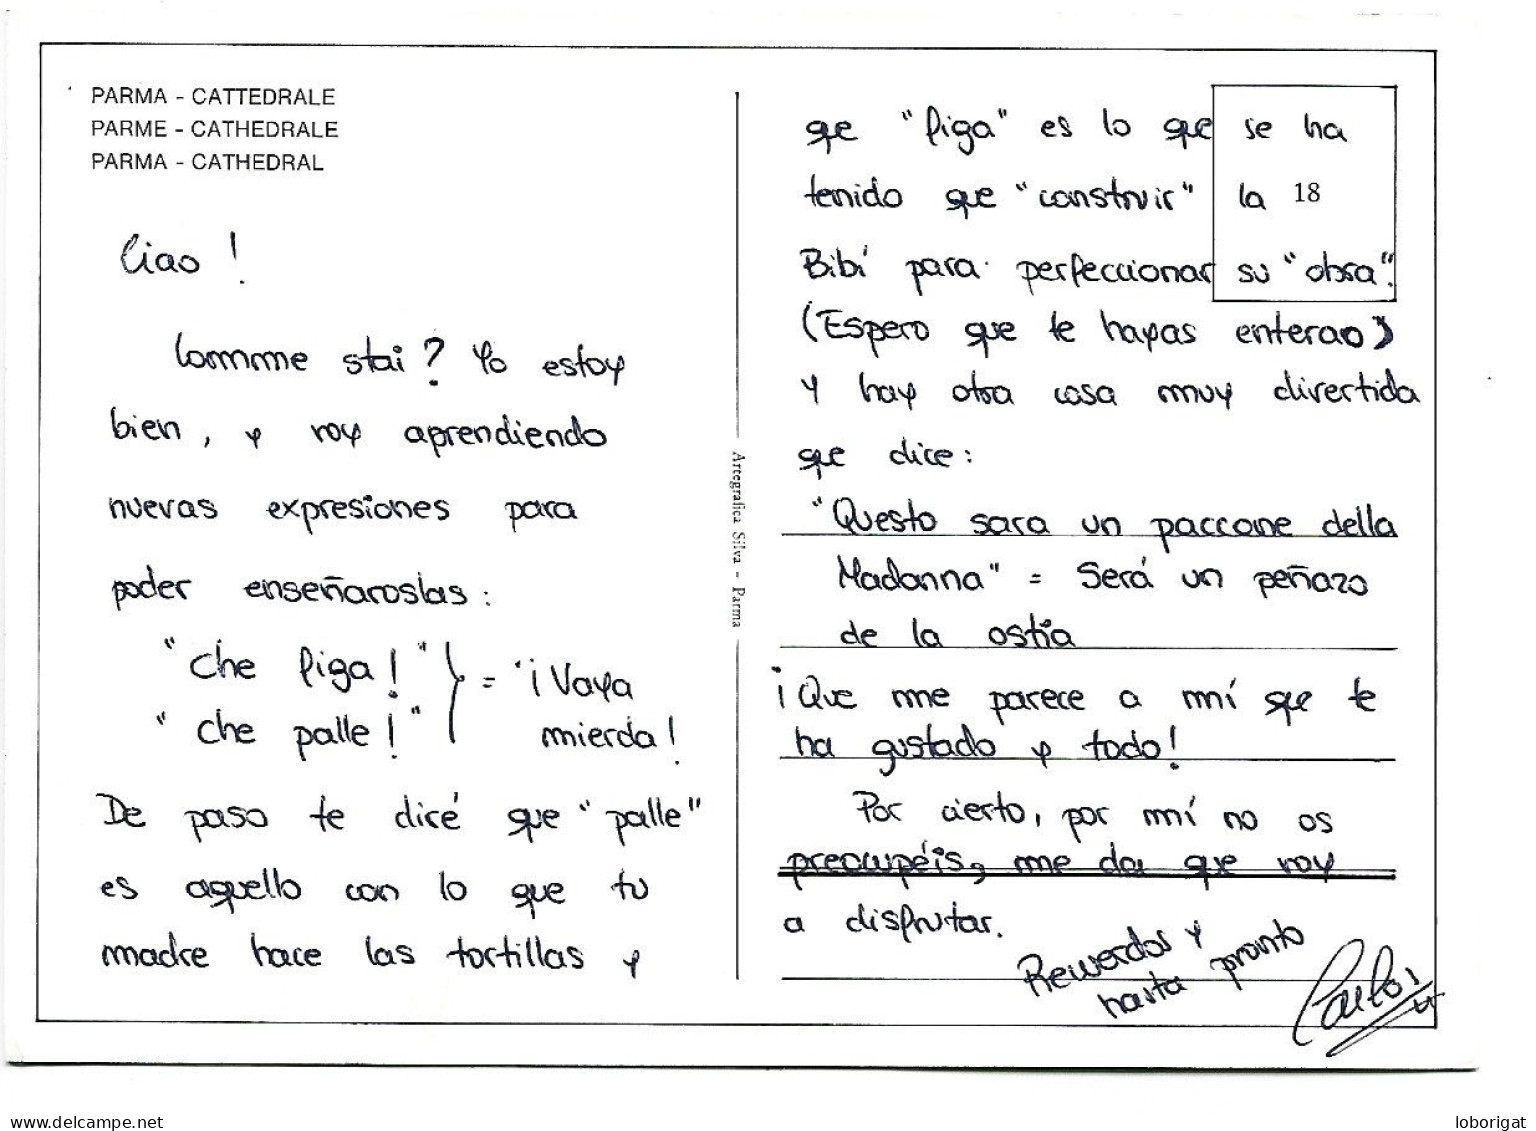 PARMA - CATTEDRALE
PARME - CATHEDRALE
PARMA - CATHEDRAL
Ciao !
Commme stai? Yo estoy
bien, y voy aprendiendo
nuevas expresiones para
poder enseñaroslas:
"che figa!"
"che palle!" } = "¡Vaya
mierda!
De paso te diré que "palle"
es aquello con lo que tu
madre hace las tortillas y
Artegrafica Silva - Parma
que "figa" es lo que se ha
tenido que "construir" la 18
Bibí para perfeccionar su "obra".
(Espero que te hayas enterao)
Y hay otra cosa muy divertida
que dice:
"Questo sara un paccone della
Madonna" = Será un peñazo
de la ostia
¡Que me parece a mí que te
ha gustado y todo!
Por cierto, por mí no os
preocupéis, me da que voy
a disfrutar.
Recuerdos y
hasta pronto
Carlos
www.delcampe.net
loborigat